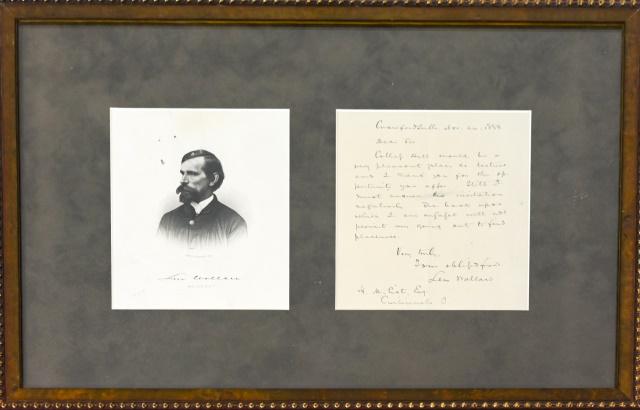 Lew Wallace
Crawfordsville, Nov. 1888
Dear Sir
College Hill would be a
very pleasant place to lecture
and I thank you for the op-
portunity you offer. Still I
must answer the invitation
negatively. The book upon
which I am engaged will not
permit my going out to find
pleasures.
Very truly,
Your obliged friend
Lew Wallace
Esq.
Cincinnati O